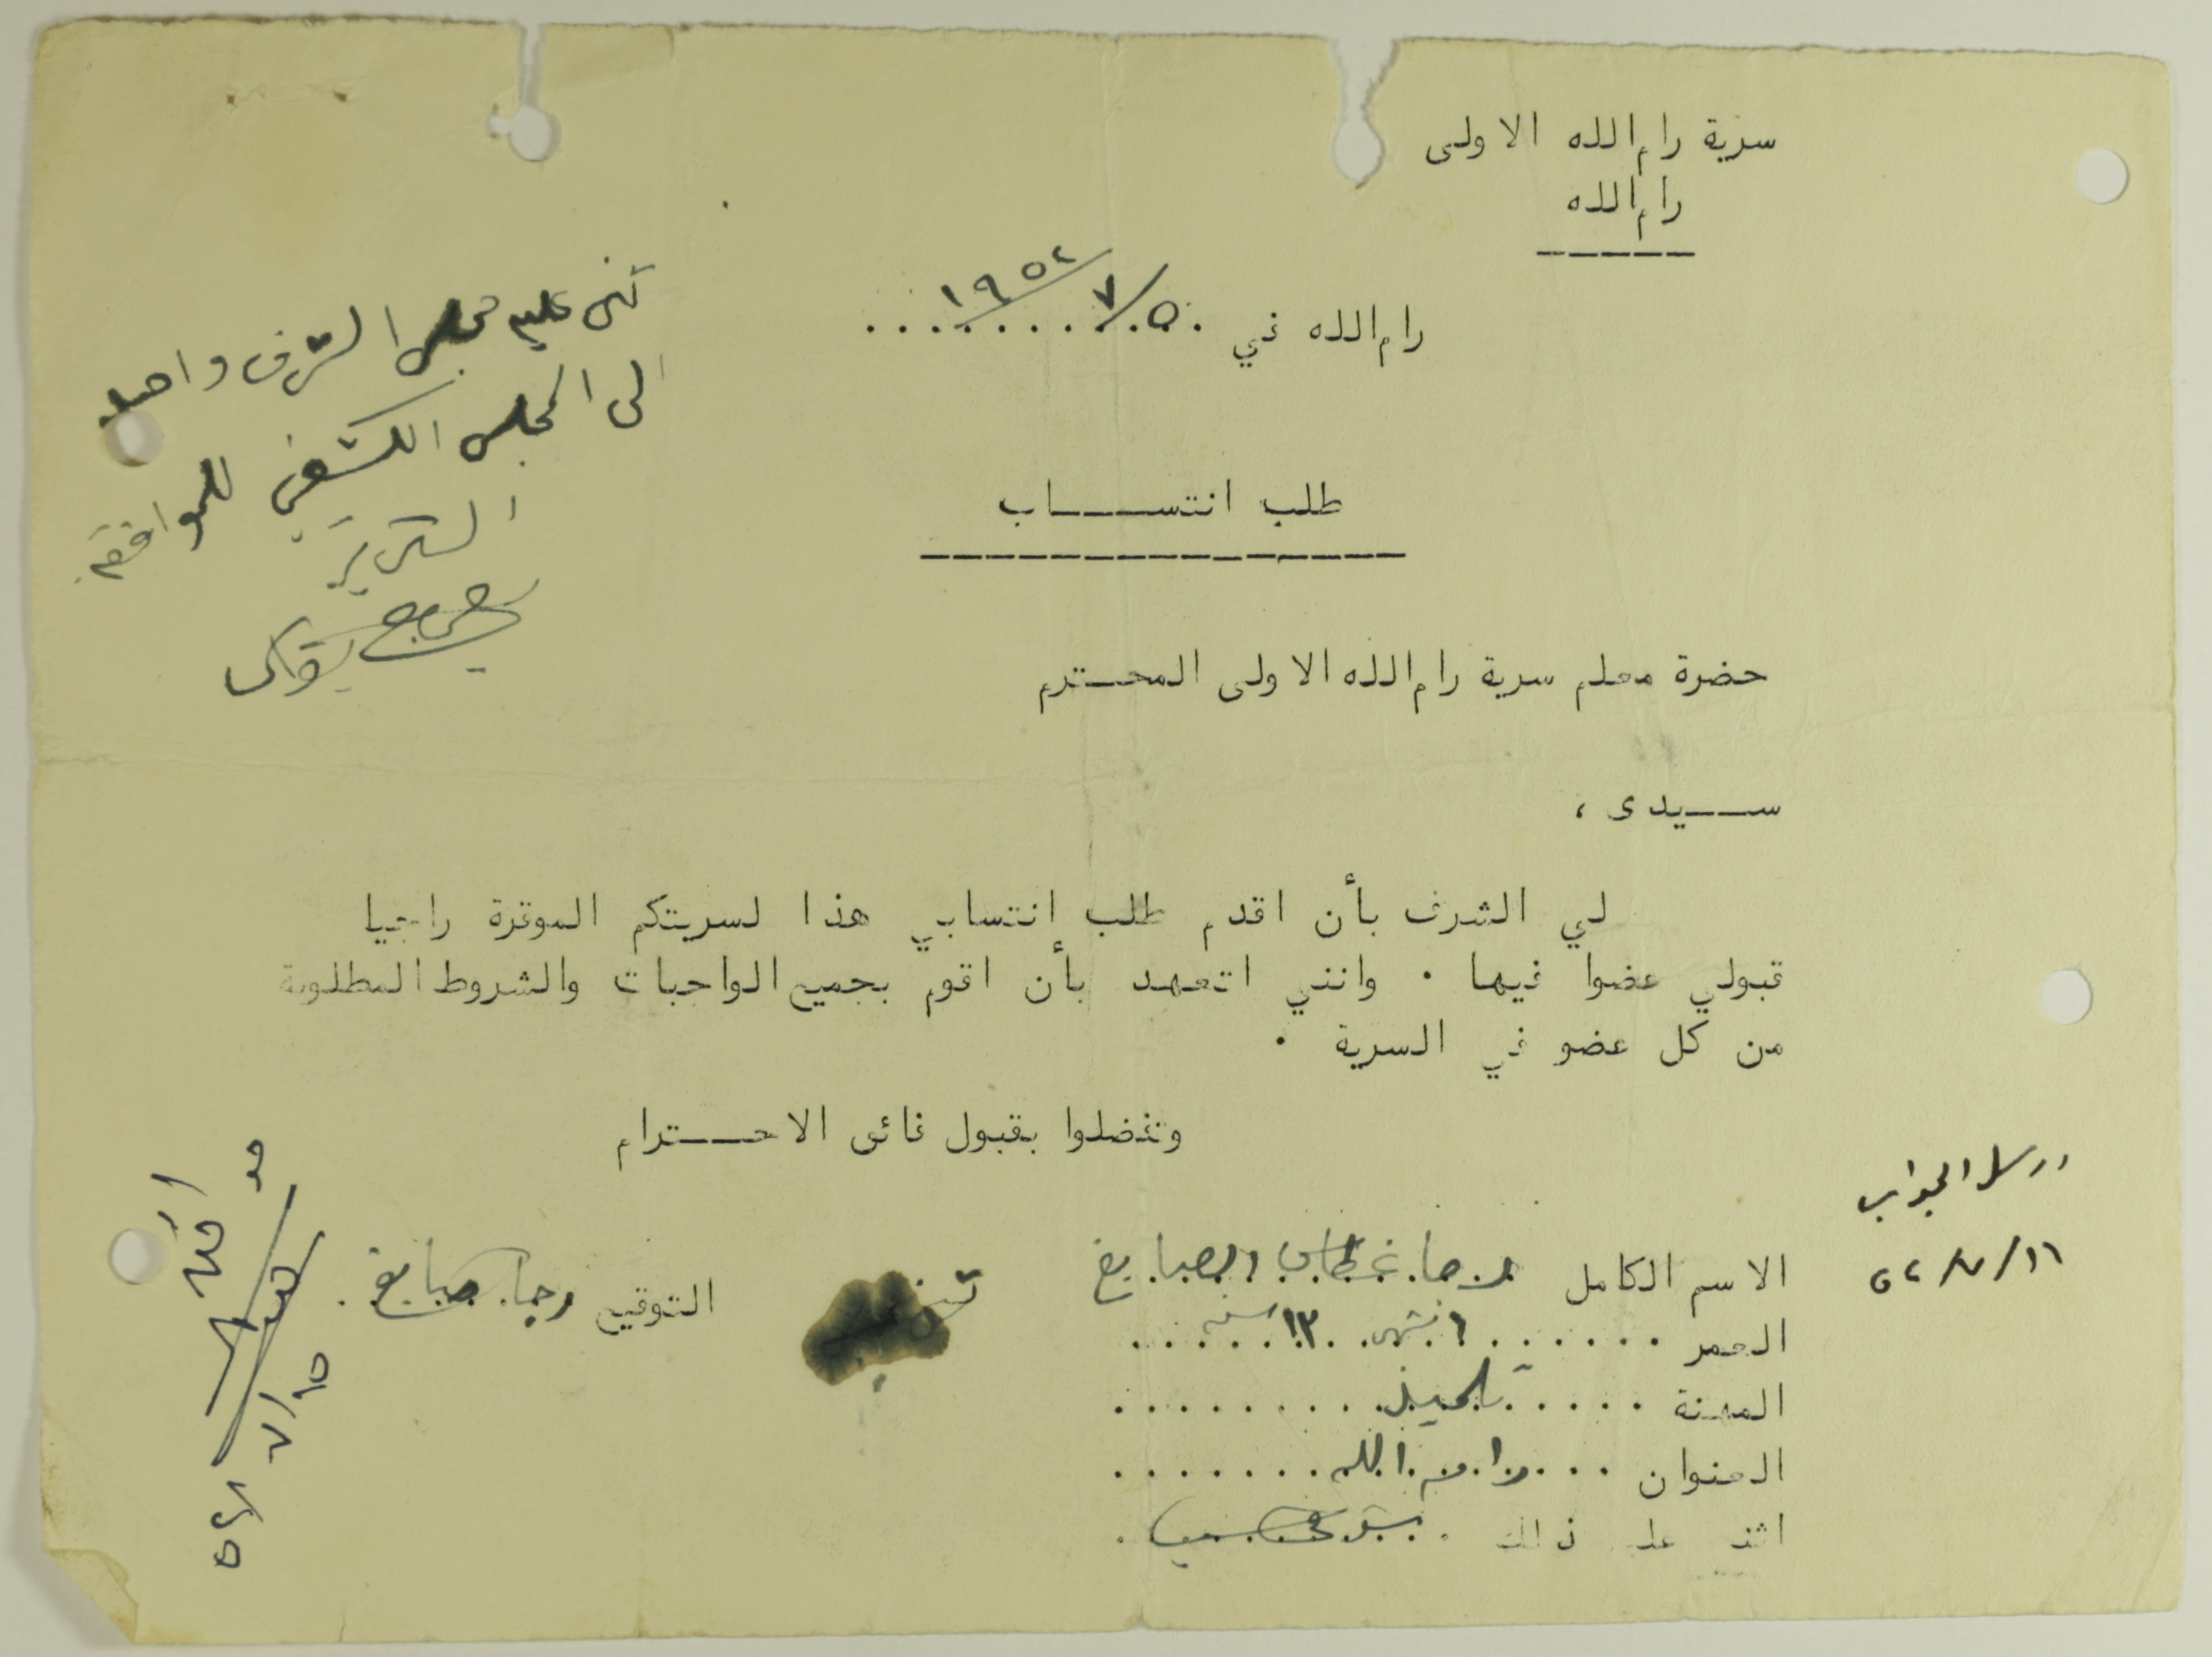 سرية رام الله الاولى
رام الله
رام الله في ٥/٧/١٩٥٢
ثنى عليه مجلس الشرف واحيل
الى المجلس الكشفي للموافقة
السكرتير
طلب انتســـاب
حضرة معلم سرية رام الله الاولى المحـترم
ســيدى ،
لي الشرف بأن اقدم طلب انتسابي هذا لسريتكم الموقرة راجيا
قبولي عضوا فيها . وانني اتعهد بأن اقوم بجميع الواجبات والشروط المطلوبة
من كل عضو في السرية .
وتفضلوا بقبول فائق الاحــترام
ارسل الجواب
١٦/٧/٥٢
الاسم الكامل رجا غطاس الصايغ
العمر ٠٠٠ ١٣ سنة
المهنة تلميذ
العنوان رام الله
اثنى على ذلك
التوقيع رجا صايغ
١٥/٧/٥٢